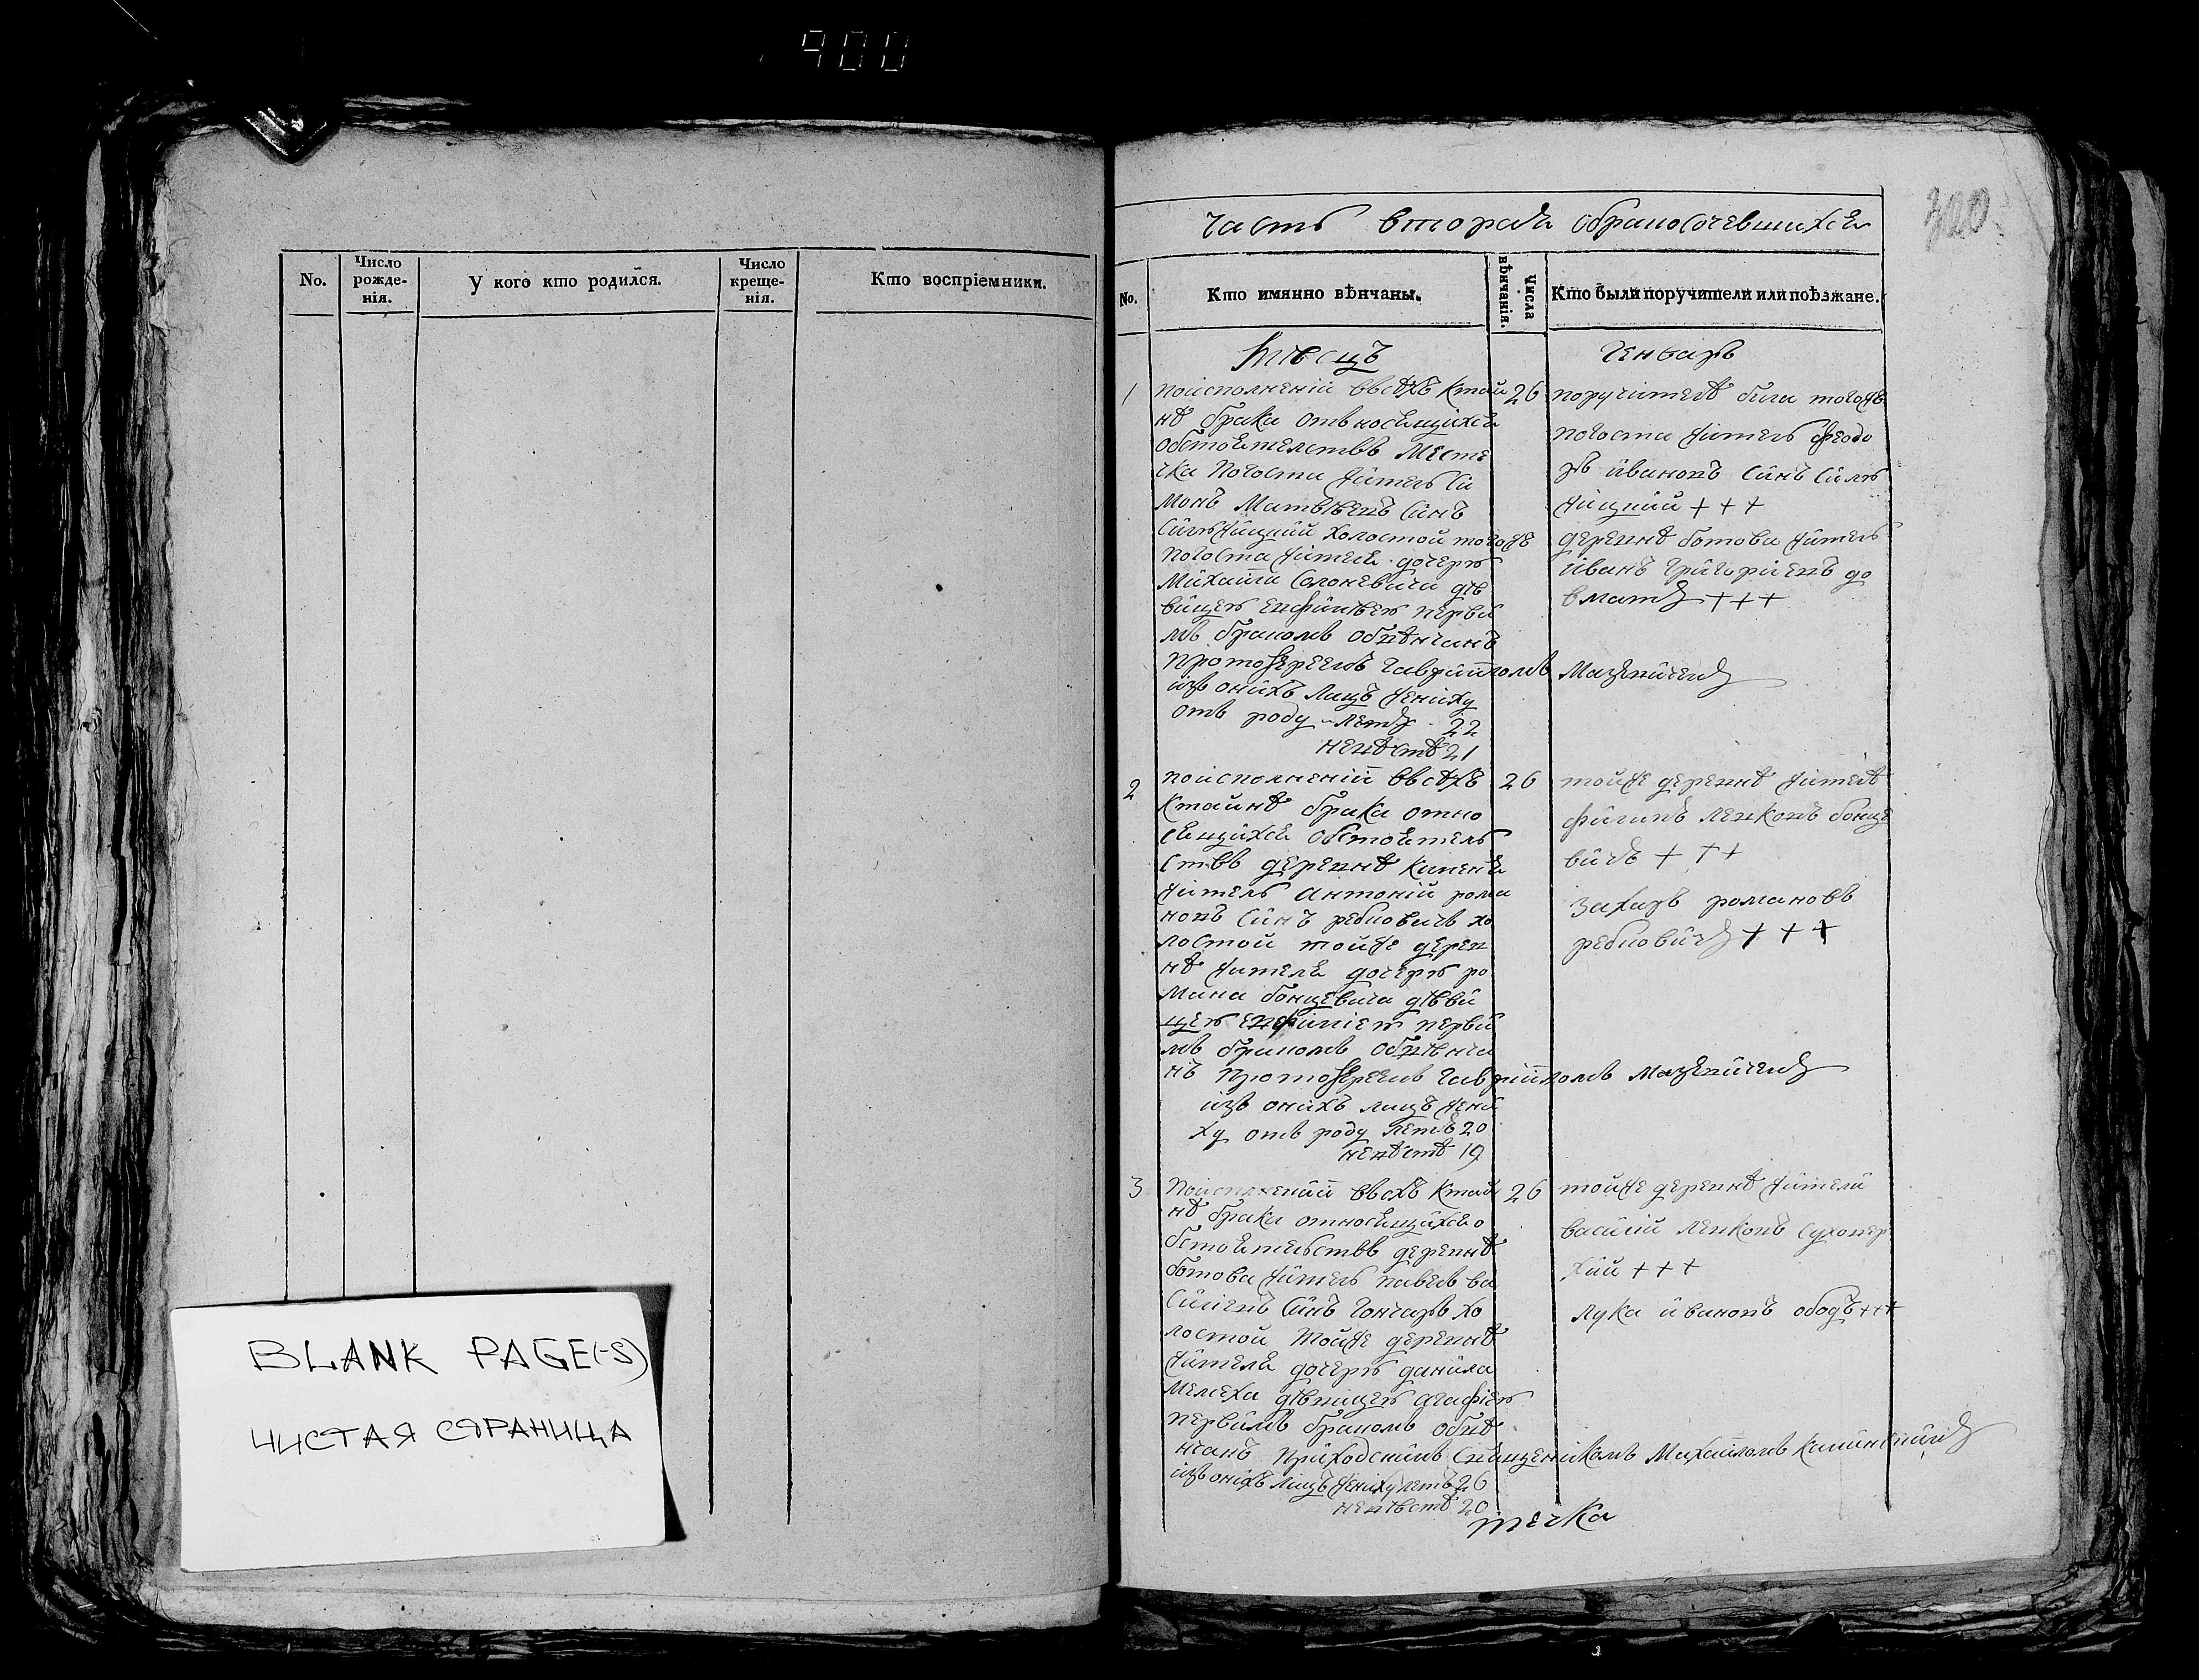 900
No.
Число рожде-нія.
У кого кто родился.
Число креще-нія.
Кто воспріемники.
BLANK PAGE(-S)
ЧИСТАЯ СТРАНИЦА
320
часть вторая обракосочевшихся
No.
Кто имянно вѣнчаны.
Числа вѣнчанія.
Кто были поручители или поѣзжане.
Генварь
1
поисполненіи ввсѣхъ ктай
26
нѣ брака отъносящихся
обстоятелствъ Месте
чка Погоста житель Си
монъ Матвѣевъ синъ
холостой тогожъ
Погоста жителя дочерь
Михаила Солоневича дѣ
вицею первы
мъ бракомъ обвѣнчанъ
Протоѣреемъ Гавріиломъ
изъ онихъ лицъ жениху
отъ роду летъ 22
невѣстѣ 21
поручителѣ била тогожъ
погоста житель Феодо
ръ ивановъ синъ
+ + +
деревнѣ ботова житель
иванъ григоріевъ до
вматъ + + +
2
поисполненіи ввсѣхъ
26
ктайнѣ брака отно
сящихся обстоятель
ствъ деревнѣ
житель антоній рома
новъ синъ хо
лостой тойже дерев
нѣ жителя дочерь ро
мана бонцевича дѣви
цею первы
мъ бракомъ обвѣнча
нъ Протоѣреемъ Гавріиломъ
изъ онихъ лицъ жени
ху отъ роду летъ 20
невѣстѣ 19
тойже деревнѣ жителѣ
филипъ левковъ бонце
вичъ + + +
захаръ романовъ
+ + +
3
Поисполненіи ввсѣхъ ктай
26
нѣ брака относящихсяо
бстоятельствъ деревнѣ
ботова житель павелъ ва
силіевъ синъ гончаръ хо
лостой тойже деревнѣ
жителя дочерь данила
мелеха дѣвицею агафіею
первимъ бракомъ обвѣ
нчанъ Приходскимъ священникомъ Михаиломъ
изъ онихъ лицъ жениху летъ 26
невѣстѣ 20
тойже деревнѣ жители
василій левковъ
+ + +
лука ивановъ ободъ +++
течка